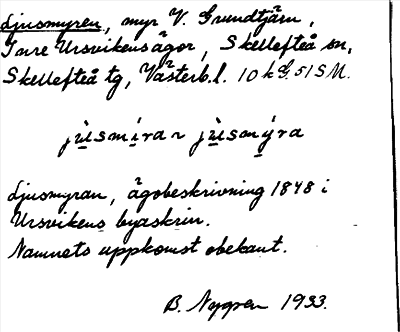 Ljusmyren, myr V. Grundtjärn,
Inre Ursvikens ägor, Skellefteå sn,
Skellefteå tg, Västerb.l. 10 k G. 51 SM.
jùsmíra r jùsmýra
Ljusmyran, ägobeskrivning 1848 i
Ursvikens byaskrin.
Namnets uppkomst obekant.
B. Nygren 1933.